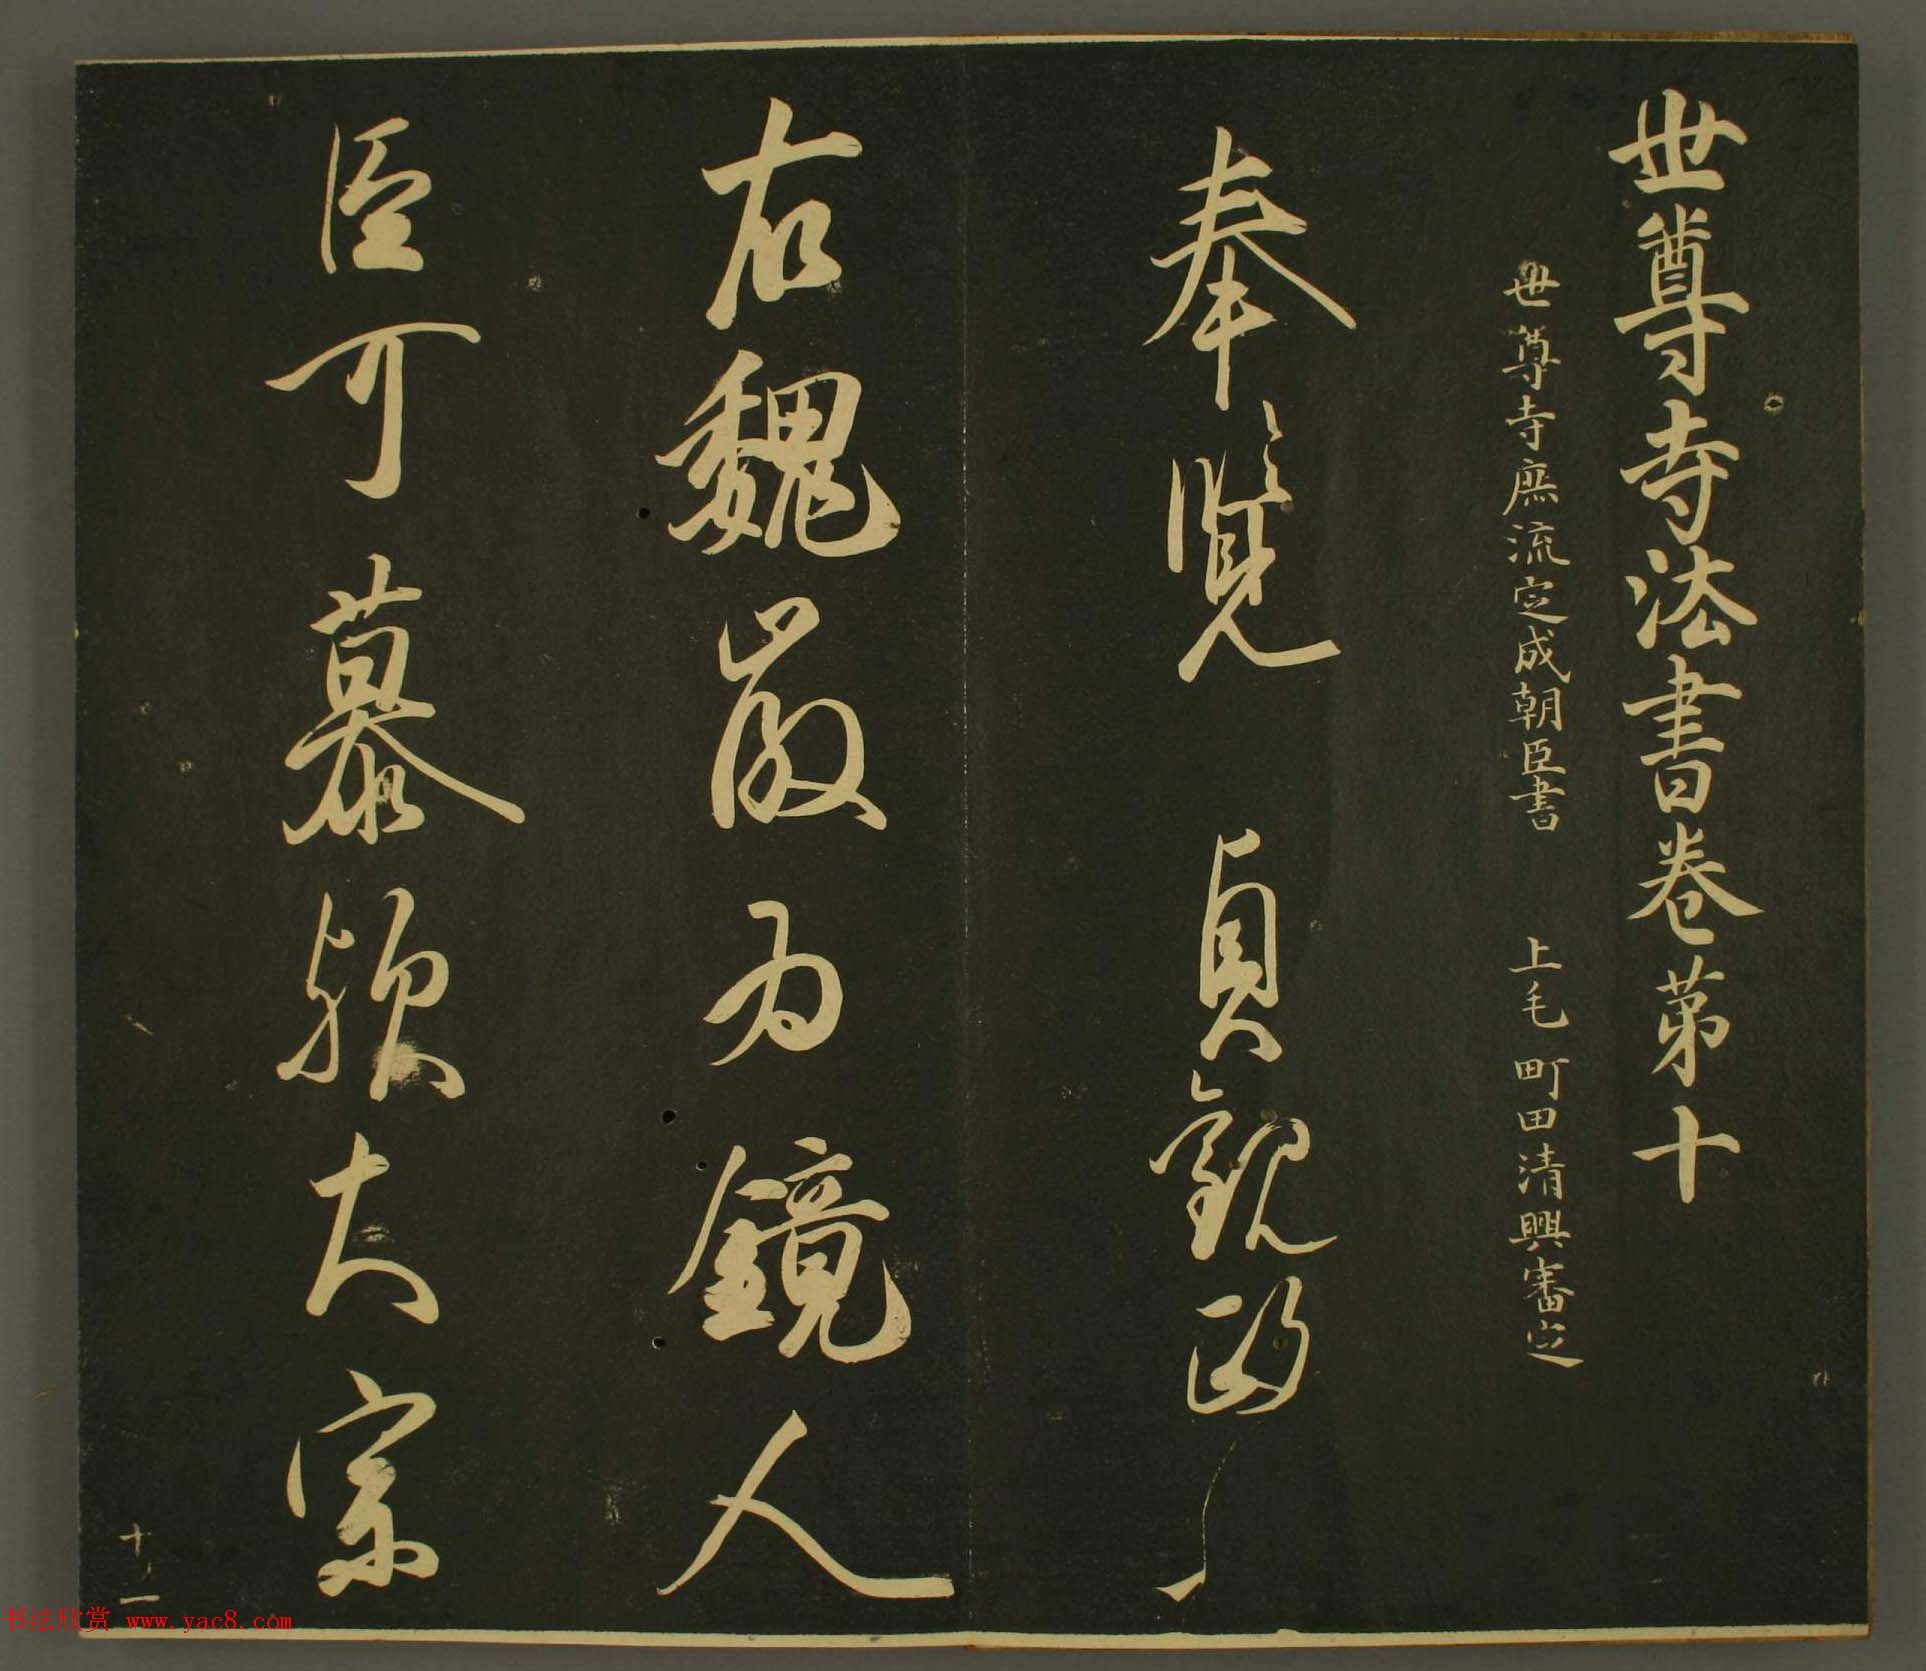 世尊寺法書卷第十
世尊寺庶流定成朝臣書 上毛町田清興審定
奉覽 貞觀政
右魏徵為鏡人
臣可慕歟大宗
十ノ一
书法欣赏 www.yac8.com